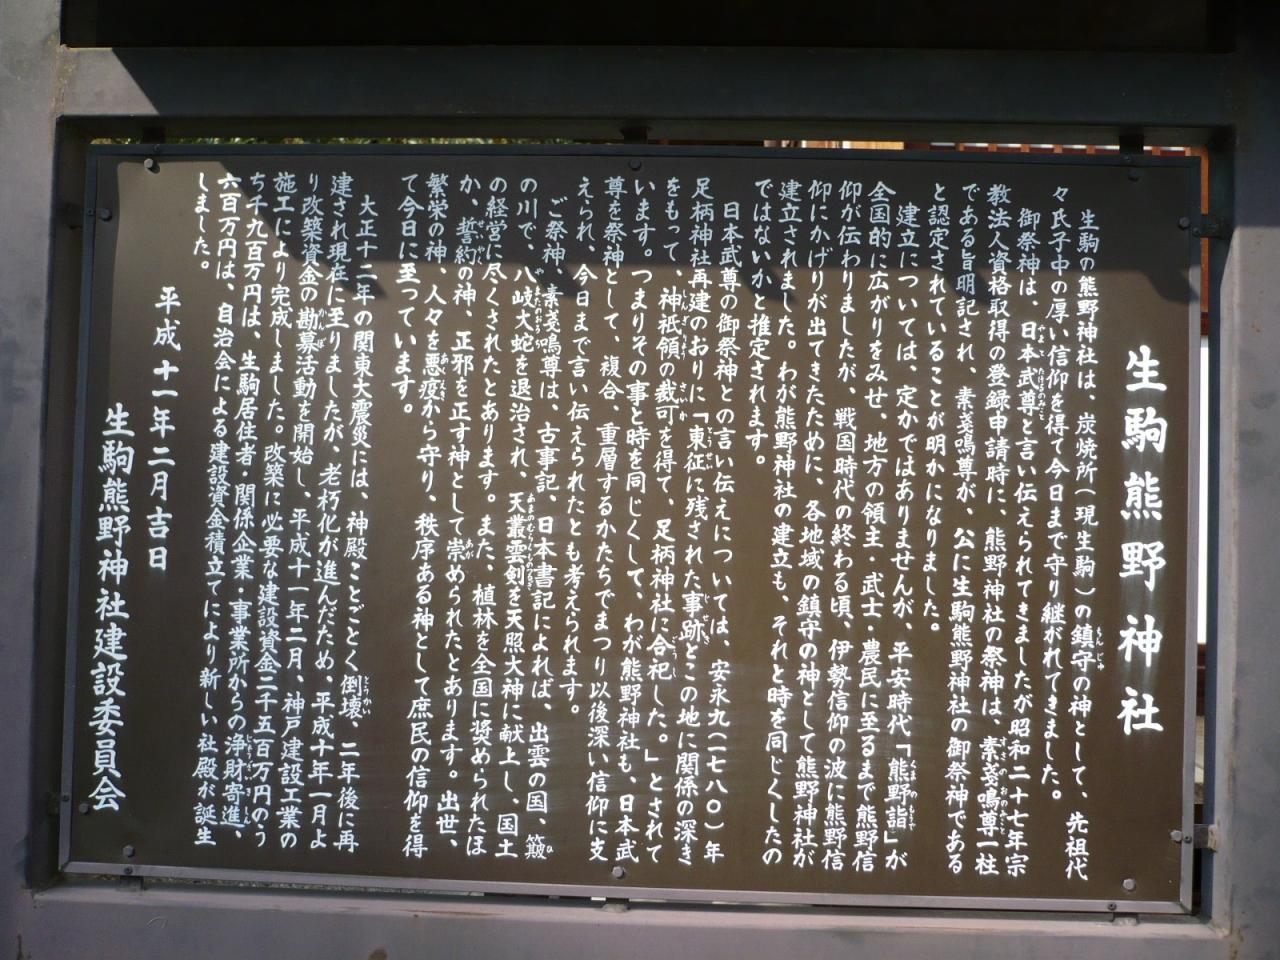 生駒熊野神社
生駒の熊野神社は、炭焼所(現生駒)の鎮守の神として、先祖代
々氏子中の厚い信仰を得て今日まで守り継がれてきました。
御祭神は、日本武尊と言い伝えられてきましたが昭和二十七年宗
教法人資格取得の登録申請時に、熊野神社の祭神は、素戔鳴尊一柱
である旨明記され、素戔鳴尊が、公に生駒熊野神社の御祭神である
と認定されていることが明かになりました。
建立については、定かではありませんが、平安時代「熊野詣」が
全国的に広がりをみせ、地方の領主・武士・農民に至るまで熊野信
仰が伝わりましたが、戦国時代の終わる頃、伊勢信仰の波に熊野信
仰にかげりが出てきたために、各地域の鎮守の神として熊野神社が
建立されました。わが熊野神社の建立も、それと時を同じくしたの
ではないかと推定されます。
日本武尊の御祭神との言い伝えについては、安永九(一七八〇)年
足柄神社再建のおりに「東征に残された事跡どこの地に関係の深き
をもって、神祇領の裁可を得て、足柄神社に合祀した。」とされて
います。つまりその事と時を同じくして、わが熊野神社も、日本武
尊を祭神として、複合、重層するかたちでまつり以後深い信仰に支
えられ、今日まで言い伝えられたとも考えられます。
ご祭神、素戔鳴尊は、古事記、日本書記によれば、出雲の国、簸
の川で、八岐大蛇を退治され、天叢雲剣を天照大神に献上し、国土
の経営に尽くされたとあります。また、植林を全国に奨められたほ
か、誓約の神、正邪を正す神として崇められたとあります。出世、
繁栄の神、人々を悪疫から守り、秩序ある神として庶民の信仰を得
て今日に至っています。
大正十二年の関東大震災には、神殿ことごとく倒壊、二年後に再
建され現在に至りましたが、老朽化が進んだため、平成十年一月よ
り改築資金の勘募活動を開始し、平成十一年二月、神戸建設工業の
施工により完成しました。改築に必要な建設資金二千五百万円のう
ち千九百万円は、生駒居住者・関係企業・事業所からの浄財寄進、
六百万円は、自治会による建設資金積立てにより新しい社殿が誕生
しました。
平成十一年二月吉日
生駒熊野神社建設委員会